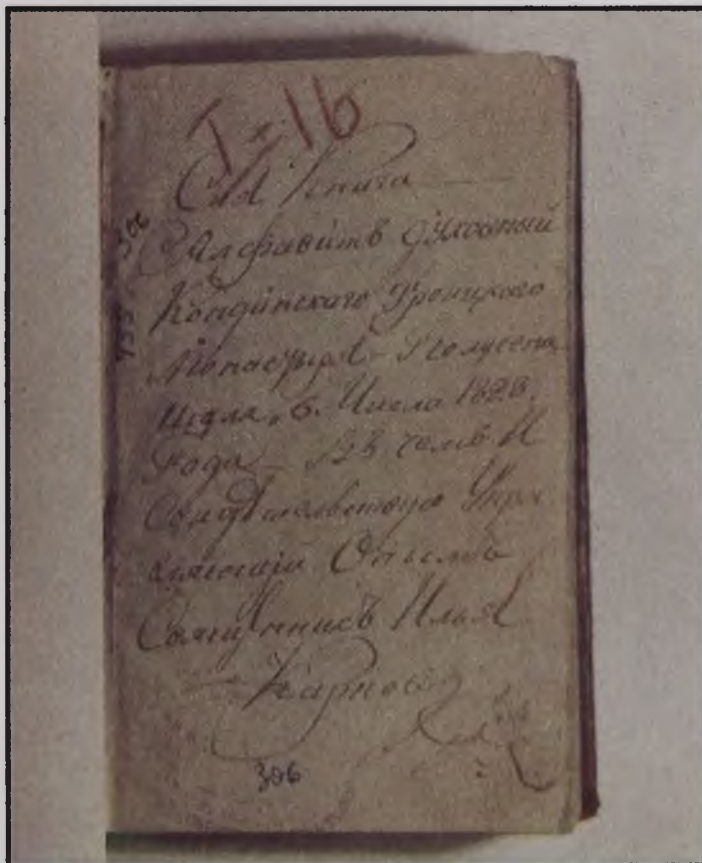 I-16
Сия Книга
Алфавитъ духовный
Кондинскаго Троицкаго
Монастыря Получена
Июля 6. Числа 1828.
Года Въ чемъ И
Свидѣтельствую Упра
вляющій Онымъ
Священникъ Илья
Карпов
306